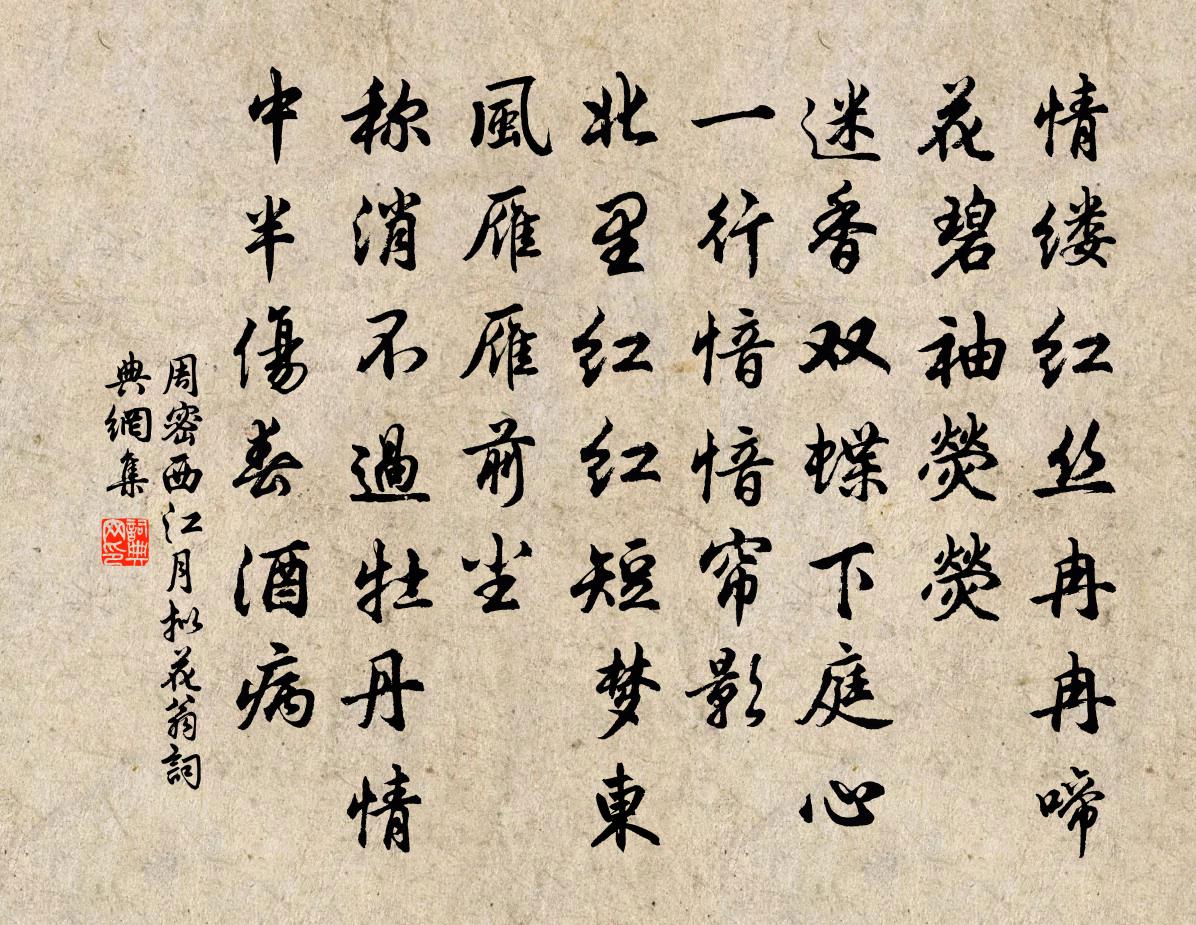 情缕红丝冉冉啼
花碧袖熒熒
迷香双蝶下庭心
一行愔愔帘影
北里红红短梦東
風雁雁前尘
称消不過牡丹情
中半傷春酒病
周密西江月拟花翁詞
典網集
詞典
网印